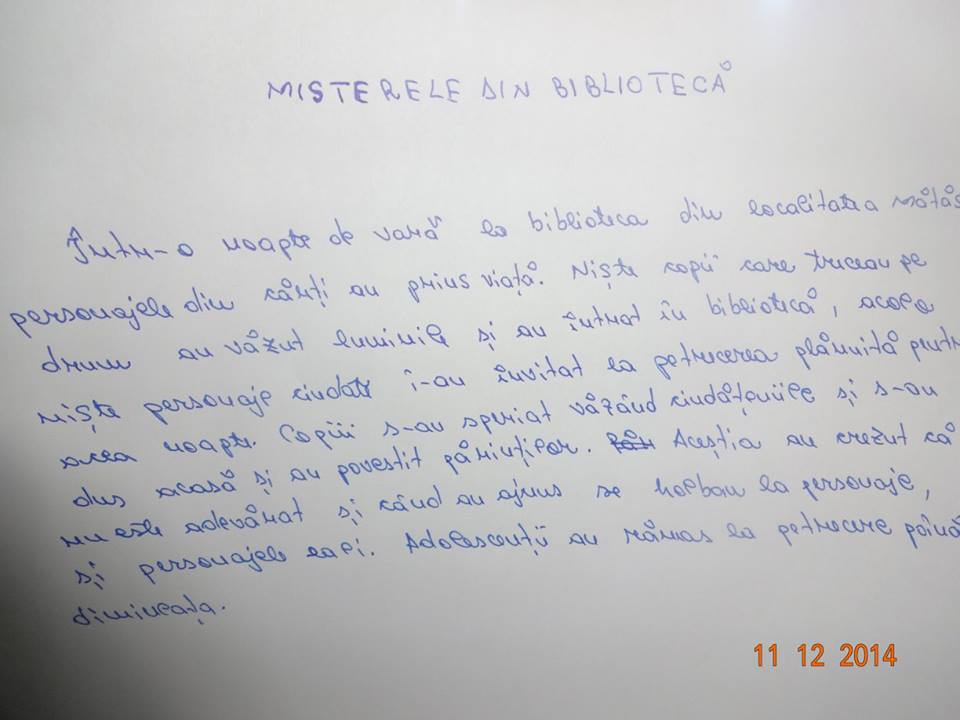 MISTERELE DIN BIBLIOTECĂ
Într-o noapte de vară la biblioteca din localitatea Mătăs
personajele din cărți au prins viață. Niște copii care treceau pe
drum au văzut luminile și au întrat în bibliotecă, acolo
niște personaje ciudate i-au învitat la petrecerea plănuită pentru
acea noapte. Copiii s-au speriat văzând ciudățeniile și s-au
dus acasă și au povestit părinților. Aceștia au crezut că
nu este adevărat și când au ajuns se holbau la personaje,
și personajele la ei. Adolescenții au rămas la petrecere pâină
dimineața.
11 12 2014